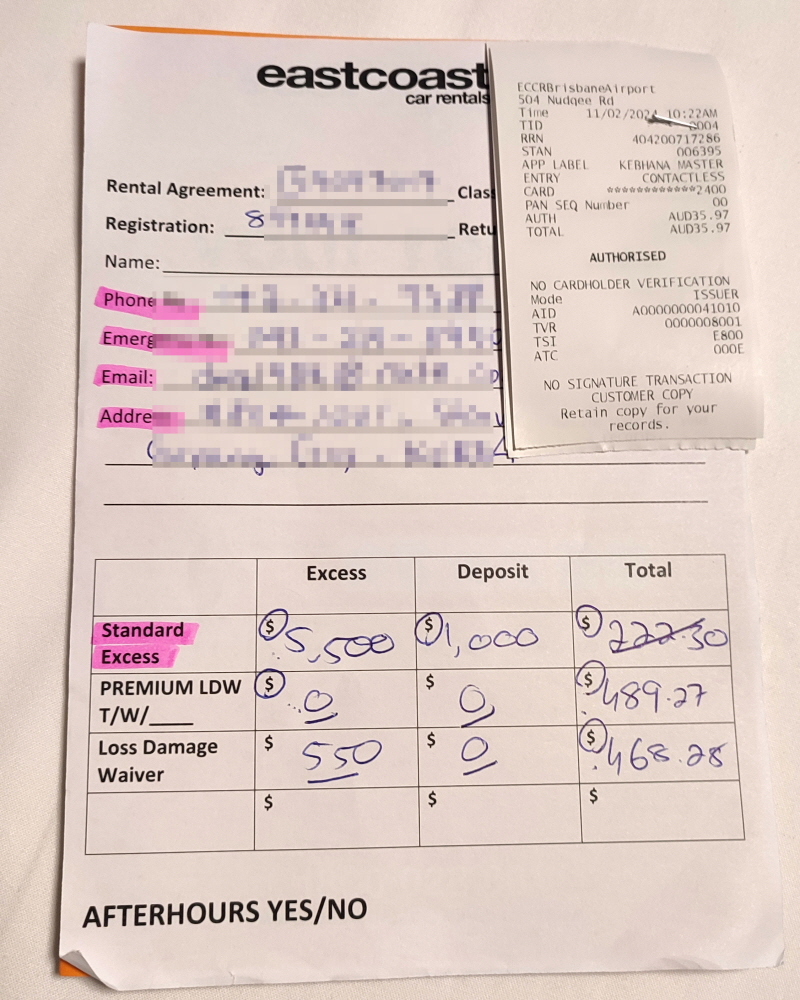 eastcoast
car rentals
Rental Agreement:
Clas
Registration: 8
Retu
Name:
Phone
Emerg
Email:
Addre
ECCRBrisbaneAirport
504 Nudgee Rd
Time 11/02/2024 10:22AM
TID 0004
RRN 404200717286
STAN 006395
APP LABEL KEBHANA MASTER
ENTRY CONTACTLESS
CARD ************2400
PAN SEQ Number 00
AUTH AUD35.97
TOTAL AUD35.97
AUTHORISED
NO CARDHOLDER VERIFICATION
Mode ISSUER
AID A0000000041010
TVR 0000008001
TSI E800
ATC 000E
NO SIGNATURE TRANSACTION
CUSTOMER COPY
Retain copy for your
records.
Excess Deposit Total
Standard
Excess
$5,500 $1,000 $222.30
PREMIUM LDW
T/W/____
$0 $0 $489.27
Loss Damage
Waiver
$550 $0 $468.28
$ $ $
AFTERHOURS YES/NO